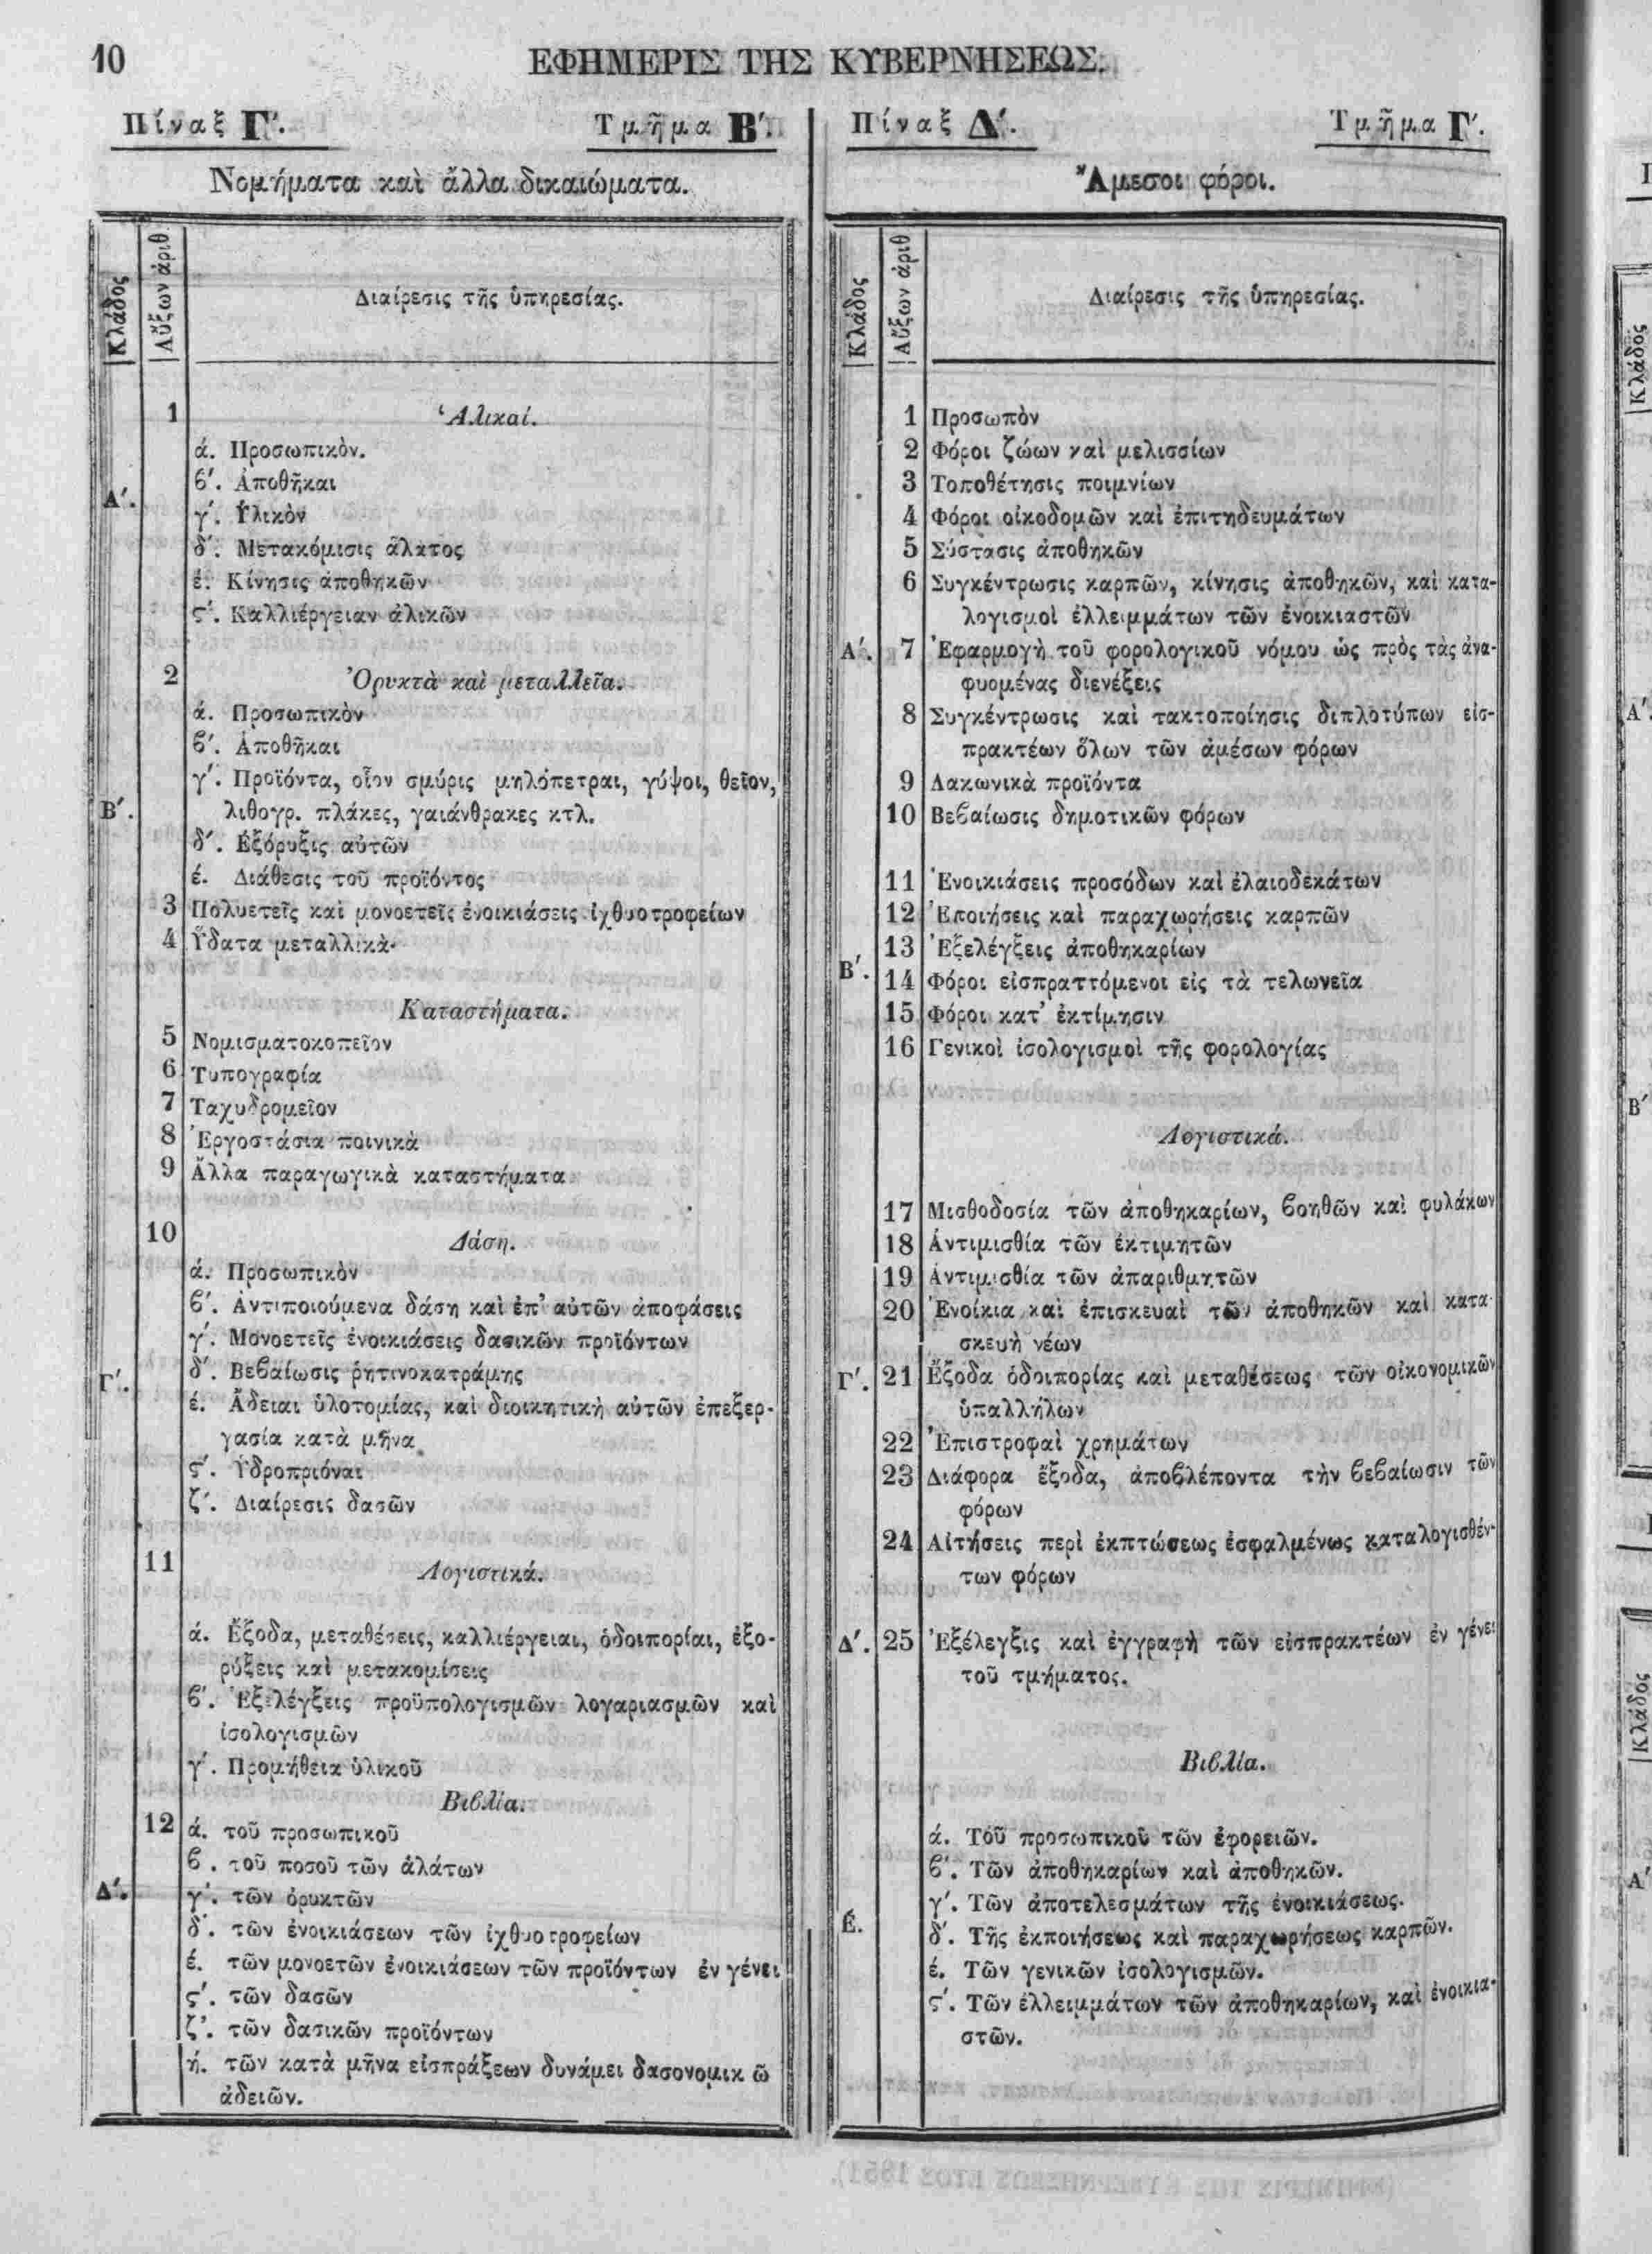 10
ΕΦΗΜΕΡΙΣ ΤΗΣ ΚΥΒΕΡΝΗΣΕΩΣ.
Πίναξ Γ΄. Τμῆμα Β΄.
Νομήματα καὶ ἄλλα δικαιώματα.
Κλάδος
Αὔξων ἀριθ
Διαίρεσις τῆς ὑπηρεσίας.
1 Ἁλικαί.
ά. Προσωπικὸν.
Α΄. β΄. Ἀποθῆκαι
γ΄. Ὑλικὸν
δ΄. Μετακόμισις ἅλατος
έ. Κίνησις ἀποθηκῶν
ς΄. Καλλιέργειαν ἁλικῶν
2 Ὀρυκτὰ καὶ μεταλλεῖα.
ά. Προσωπικὸν
β΄. Ἀποθῆκαι
γ΄. Προϊόντα, οἷον σμύρις μηλόπετραι, γύψοι, θεῖον,
Β΄. λιθογρ. πλάκες, γαιάνθρακες κτλ.
δ΄. Ἐξόρυξις αὐτῶν
έ. Διάθεσις τοῦ προϊόντος
3 Πολυετεῖς καὶ μονοετεῖς ἐνοικιάσεις ἰχθυοτροφείων
4 Ὕδατα μεταλλικὰ.
Καταστήματα.
5 Νομισματοκοπεῖον
6 Τυπογραφία
7 Ταχυδρομεῖον
8 Ἐργοστάσια ποινικὰ
9 Ἄλλα παραγωγικὰ καταστήματα
10 Δάση.
ά. Προσωπικὸν
β΄. Ἀντιποιούμενα δάση καὶ ἐπ' αὐτῶν ἀποφάσεις
γ΄. Μονοετεῖς ἐνοικιάσεις δασικῶν προϊόντων
Γ΄. δ΄. Βεβαίωσις ῥητινοκατράμης
έ. Ἄδειαι ὑλοτομίας, καὶ διοικητικὴ αὐτῶν ἐπεξερ-
γασία κατὰ μῆνα
ς΄. Ὑδροπριόναι
ζ΄. Διαίρεσις δασῶν
11 Λογιστικά.
ά. Ἔξοδα, μεταθέσεις, καλλιέργειαι, ὁδοιπορίαι, ἐξο-
ρύξεις καὶ μετακομίσεις
β΄. Ἐξελέγξεις προϋπολογισμῶν λογαριασμῶν καὶ
ἰσολογισμῶν
γ΄. Προμήθεια ὑλικοῦ
Βιβλία.
12 ά. τοῦ προσωπικοῦ
β . τοῦ ποσοῦ τῶν ἁλάτων
Δ΄. γ΄. τῶν ὀρυκτῶν
δ΄. τῶν ἐνοικιάσεων τῶν ἰχθυοτροφείων
έ. τῶν μονοετῶν ἐνοικιάσεων τῶν προϊόντων ἐν γένει
ς΄. τῶν δασῶν
ζ΄. τῶν δασικῶν προϊόντων
ή. τῶν κατὰ μῆνα εἰσπράξεων δυνάμει δασονομικ ῶ
ἀδειῶν.
Πίναξ Δ΄. Τμῆμα Γ΄.
Ἄμεσοι φόροι.
Κλάδος
Αὔξων ἀριθ
Διαίρεσις τῆς ὑπηρεσίας.
1 Προσωπὸν
2 Φόροι ζώων καὶ μελισσίων
3 Τοποθέτησις ποιμνίων
4 Φόροι οἰκοδομῶν καὶ ἐπιτηδευμάτων
5 Σύστασις ἀποθηκῶν
6 Συγκέντρωσις καρπῶν, κίνησις ἀποθηκῶν, καὶ κατα-
λογισμοὶ ἐλλειμμάτων τῶν ἐνοικιαστῶν
Α΄. 7 Ἐφαρμογὴ τοῦ φορολογικοῦ νόμου ὡς πρὸς τὰς ἀνα-
φυομένας διενέξεις
8 Συγκέντρωσις καὶ τακτοποίησις διπλοτύπων εἰσ-
πρακτέων ὅλων τῶν ἀμέσων φόρων
9 Λακωνικὰ προϊόντα
10 Βεβαίωσις δημοτικῶν φόρων
11 Ἐνοικιάσεις προσόδων καὶ ἐλαιοδεκάτων
12 Ἐποιήσεις καὶ παραχωρήσεις καρπῶν
13 Ἐξελέγξεις ἀποθηκαρίων
Β΄. 14 Φόροι εἰσπραττόμενοι εἰς τὰ τελωνεῖα
15 Φόροι κατ' ἐκτίμησιν
16 Γενικοὶ ἰσολογισμοὶ τῆς φορολογίας
Λογιστικά.
17 Μισθοδοσία τῶν ἀποθηκαρίων, βοηθῶν καὶ φυλάκων
18 Ἀντιμισθία τῶν ἐκτιμητῶν
19 Ἀντιμισθία τῶν ἀπαριθμητῶν
20 Ἐνοίκια καὶ ἐπισκευαὶ τῶν ἀποθηκῶν καὶ κατα-
σκευὴ νέων
Γ΄. 21 Ἔξοδα ὁδοιπορίας καὶ μεταθέσεως τῶν οἰκονομικῶν
ὑπαλλήλων
22 Ἐπιστροφαὶ χρημάτων
23 Διάφορα ἔξοδα, ἀποβλέποντα τὴν βεβαίωσιν τῶν
φόρων
24 Αἰτήσεις περὶ ἐκπτώσεως ἐσφαλμένως καταλογισθέν-
των φόρων
Δ΄. 25 Ἐξέλεγξις καὶ ἐγγραφὴ τῶν εἰσπρακτέων ἐν γένει
τοῦ τμήματος.
Βιβλία.
ά. Τοῦ προσωπικοῦ τῶν ἐφορειῶν.
β΄. Τῶν ἀποθηκαρίων καὶ ἀποθηκῶν.
γ΄. Τῶν ἀποτελεσμάτων τῆς ἐνοικιάσεως.
Έ. δ΄. Τῆς ἐκποιήσεως καὶ παραχωρήσεως καρπῶν.
έ. Τῶν γενικῶν ἰσολογισμῶν.
ς΄. Τῶν ἐλλειμμάτων τῶν ἀποθηκαρίων, καὶ ἐνοικια-
στῶν.
Κλάδος
Α΄.
Β΄
Κλάδος
Α΄